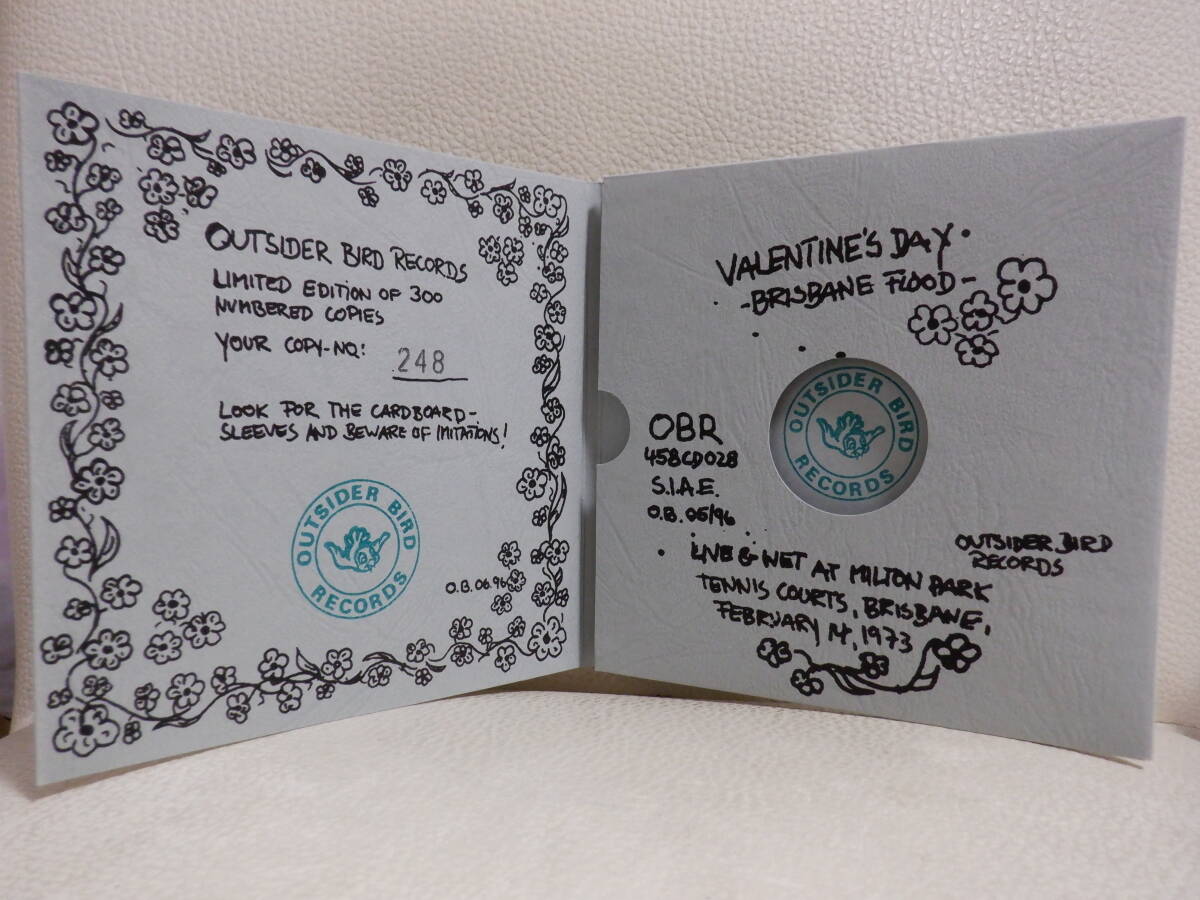 OUTSIDER BIRD RECORDS
LIMITED EDITION OF 300
NUMBERED COPIES
YOUR COPY-NO: 248
LOOK FOR THE CARDBOARD-
SLEEVES AND BEWARE OF IMITATIONS!
OUTSIDER BIRD
RECORDS
O.B. 06.96
VALENTINE'S DAY
-BRISBANE FLOOD-
OBR
458CD028
S.I.A.E.
O.B. 06/96
OUTSIDER BIRD
RECORDS
OUTSIDER BIRD
RECORDS
LIVE & WET AT MILTON PARK
TENNIS COURTS, BRISBANE,
FEBRUARY 14, 1973